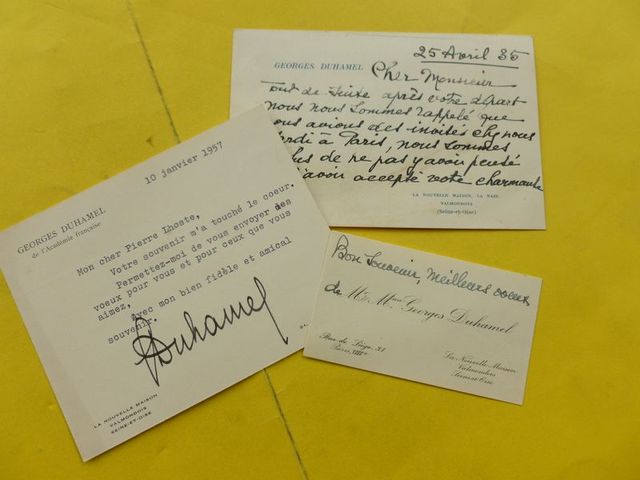 25 Avril 35
GEORGES DUHAMEL
Cher Monsieur
Tout de suite après votre départ
nous nous sommes rappelé que
ous avions des invités chez nous
ardi à Paris, nous sommes
de ne pas y avoir pensé
d'avoir accepté votre charmante
LA NOUVELLE MAISON, LA NAZE,
VALMONDOIS
(Seine-et-Oise)
10 janvier 1957
GEORGES DUHAMEL
de l'Académie française
Mon cher Pierre Lhoste,
Votre souvenir m'a touché le coeur.
Permettez-moi de vous envoyer des
voeux pour vous et pour ceux que vous
aimez,
avec mon bien fidèle et amical
souvenir.
Duhamel
LA NOUVELLE MAISON
VALMONDOIS
SEINE-ET-OISE
Bon Souvenir, meilleurs voeux
de Mr. Mme Georges Duhamel
Rue de Liège, 31
Paris, VIIIe
La Nouvelle Maison
Valmondois
Seine-et-Oise